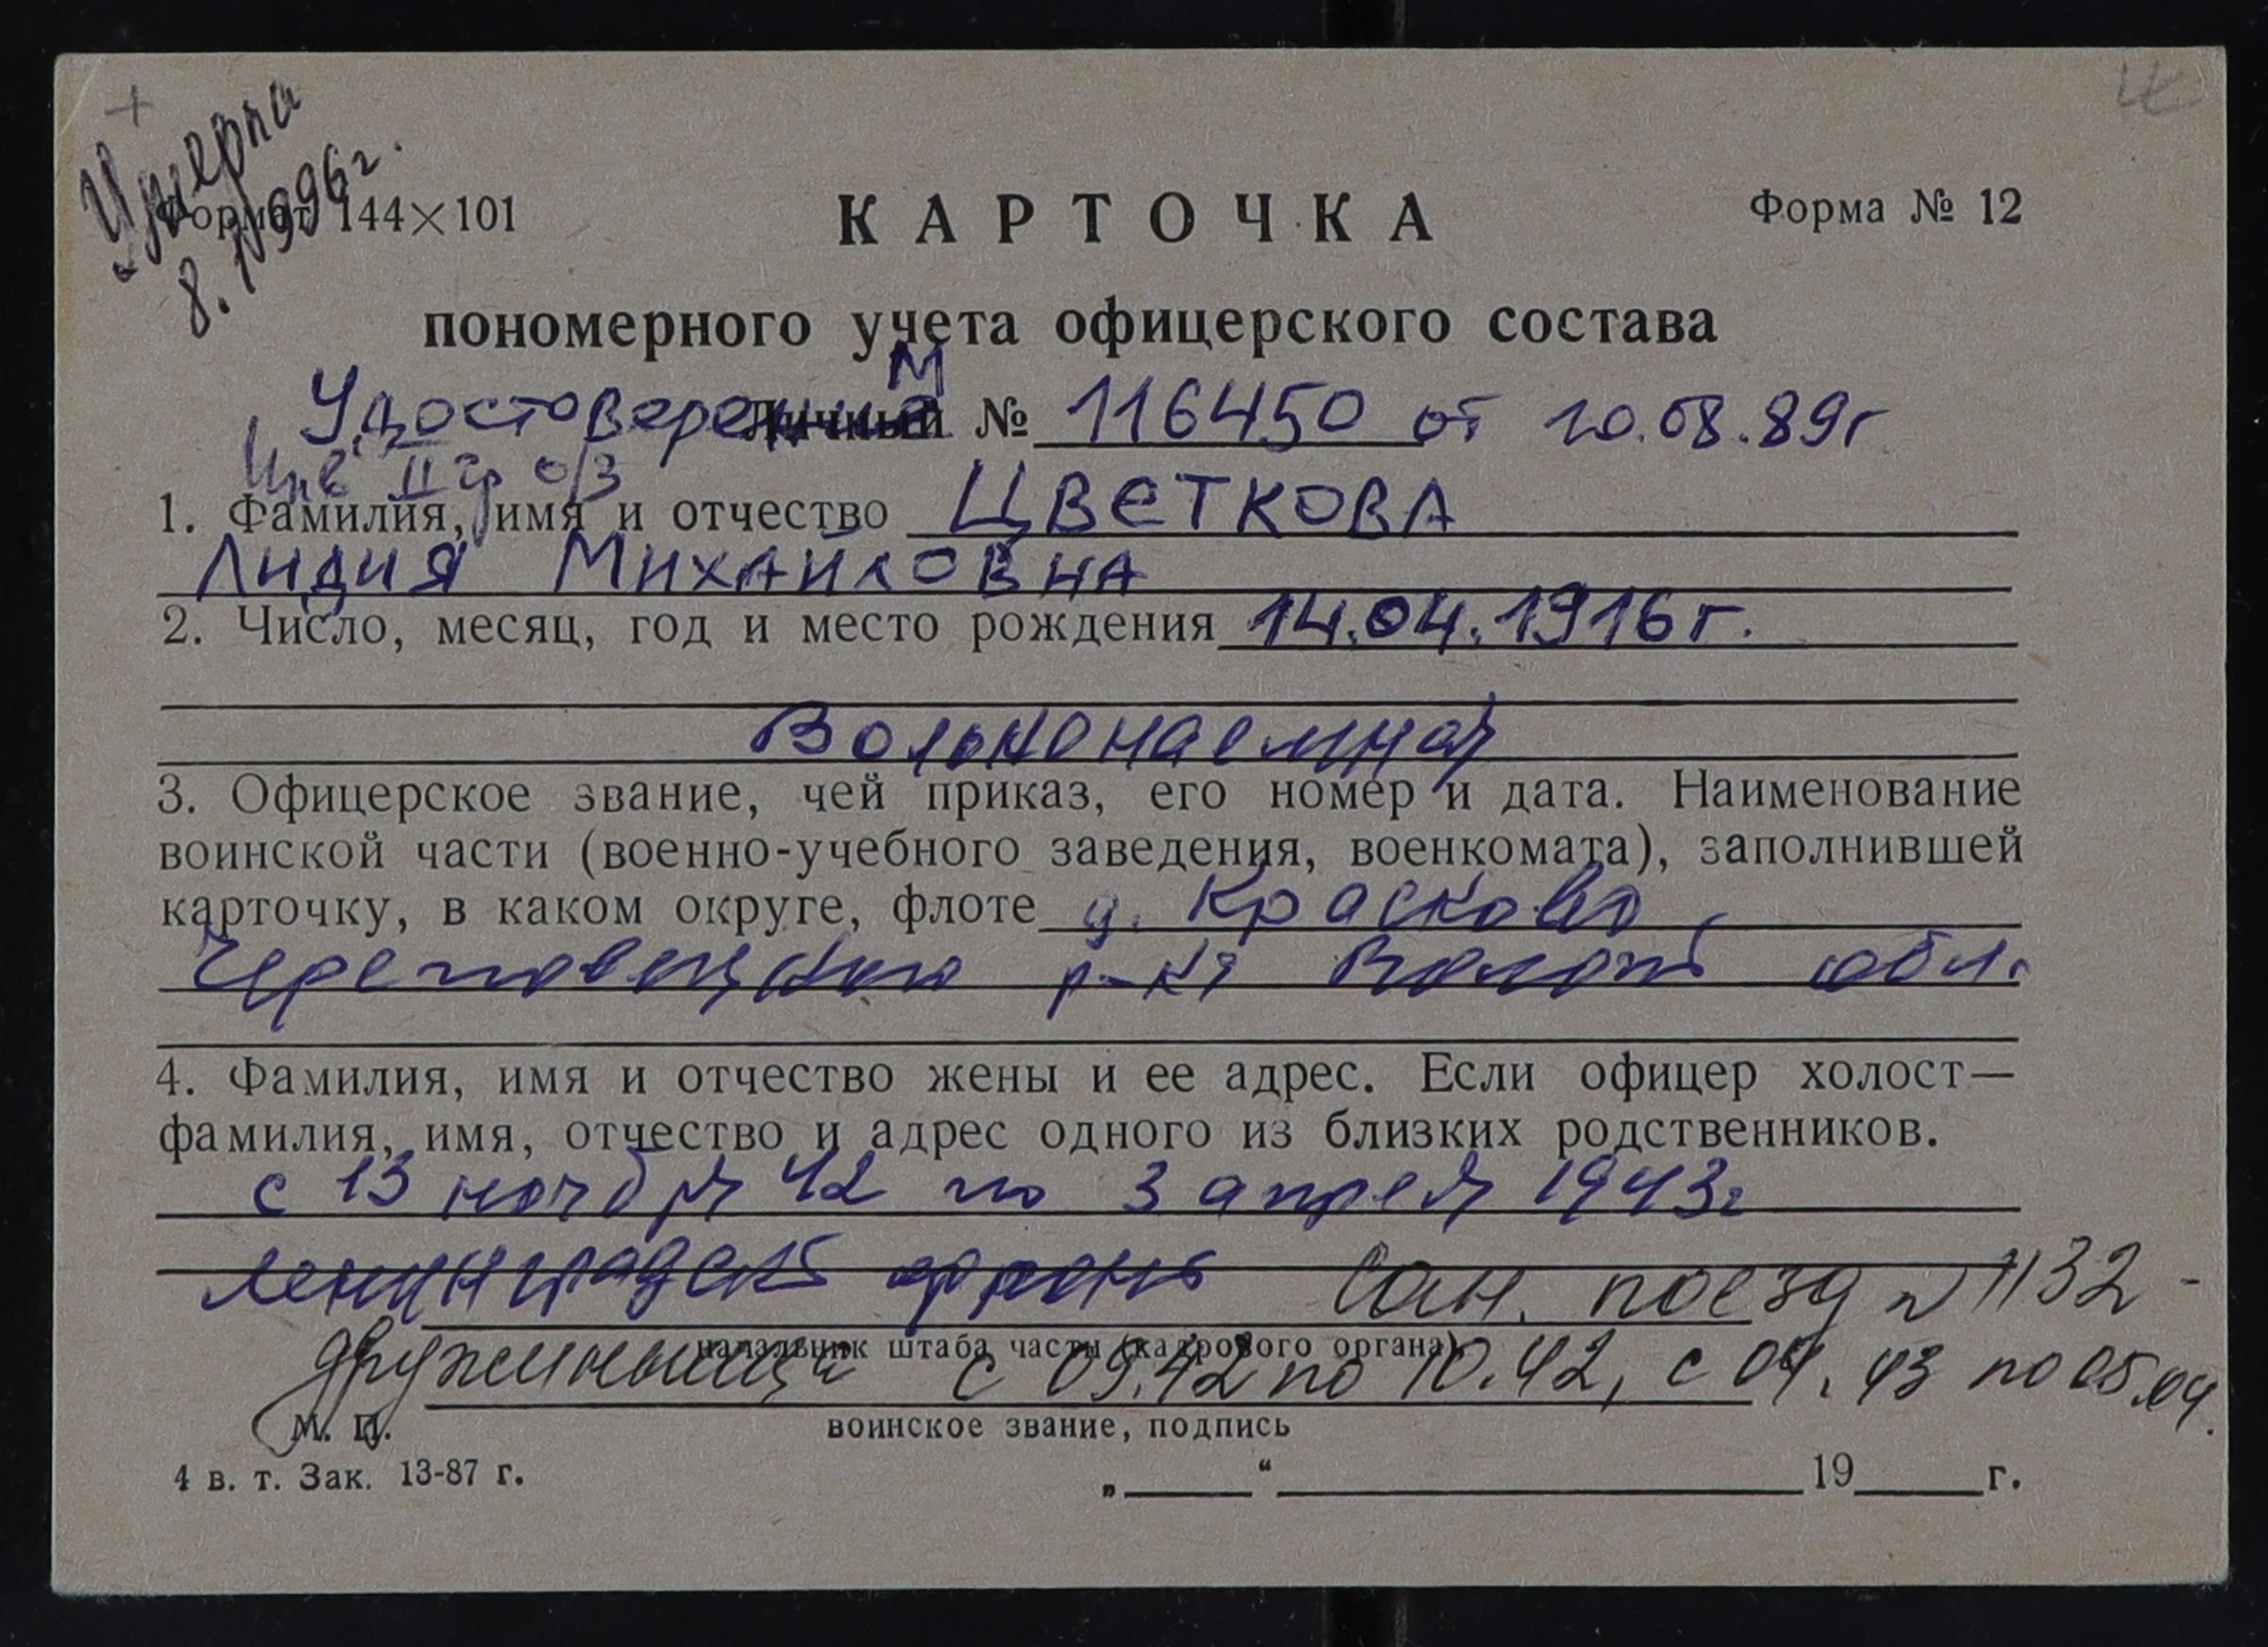 Умерла
8.IV 996г.
Формат 144×101
КАРТОЧКА
Форма № 12
пономерного учета офицерского состава
Удостоверение М
Личный № 116450 от 10.08.89г
Инв II гр о/з
1. Фамилия, имя и отчество ЦВЕТКОВА
ЛИДИЯ МИХАЙЛОВНА
2. Число, месяц, год и место рождения 14.04.1916 г.
Вольнонаемная
3. Офицерское звание, чей приказ, его номер и дата. Наименование
воинской части (военно-учебного заведения, военкомата), заполнившей
карточку, в каком округе, флоте д. Красково,
Череповецкого р-на Волог обл.
4. Фамилия, имя и отчество жены и ее адрес. Если офицер холост—
фамилия, имя, отчество и адрес одного из близких родственников.
с 13 ноября 42 по 3 апреля 1943г
Ленинградск фронт Сан. поезд № 1132 -
начальник штаба части (кадрового органа)
дружинница с 09.42 по 10.42, с 04.43 по 05.04.
М. П. воинское звание, подпись
4 в. т. Зак. 13-87 г.
„ “ 19 г.